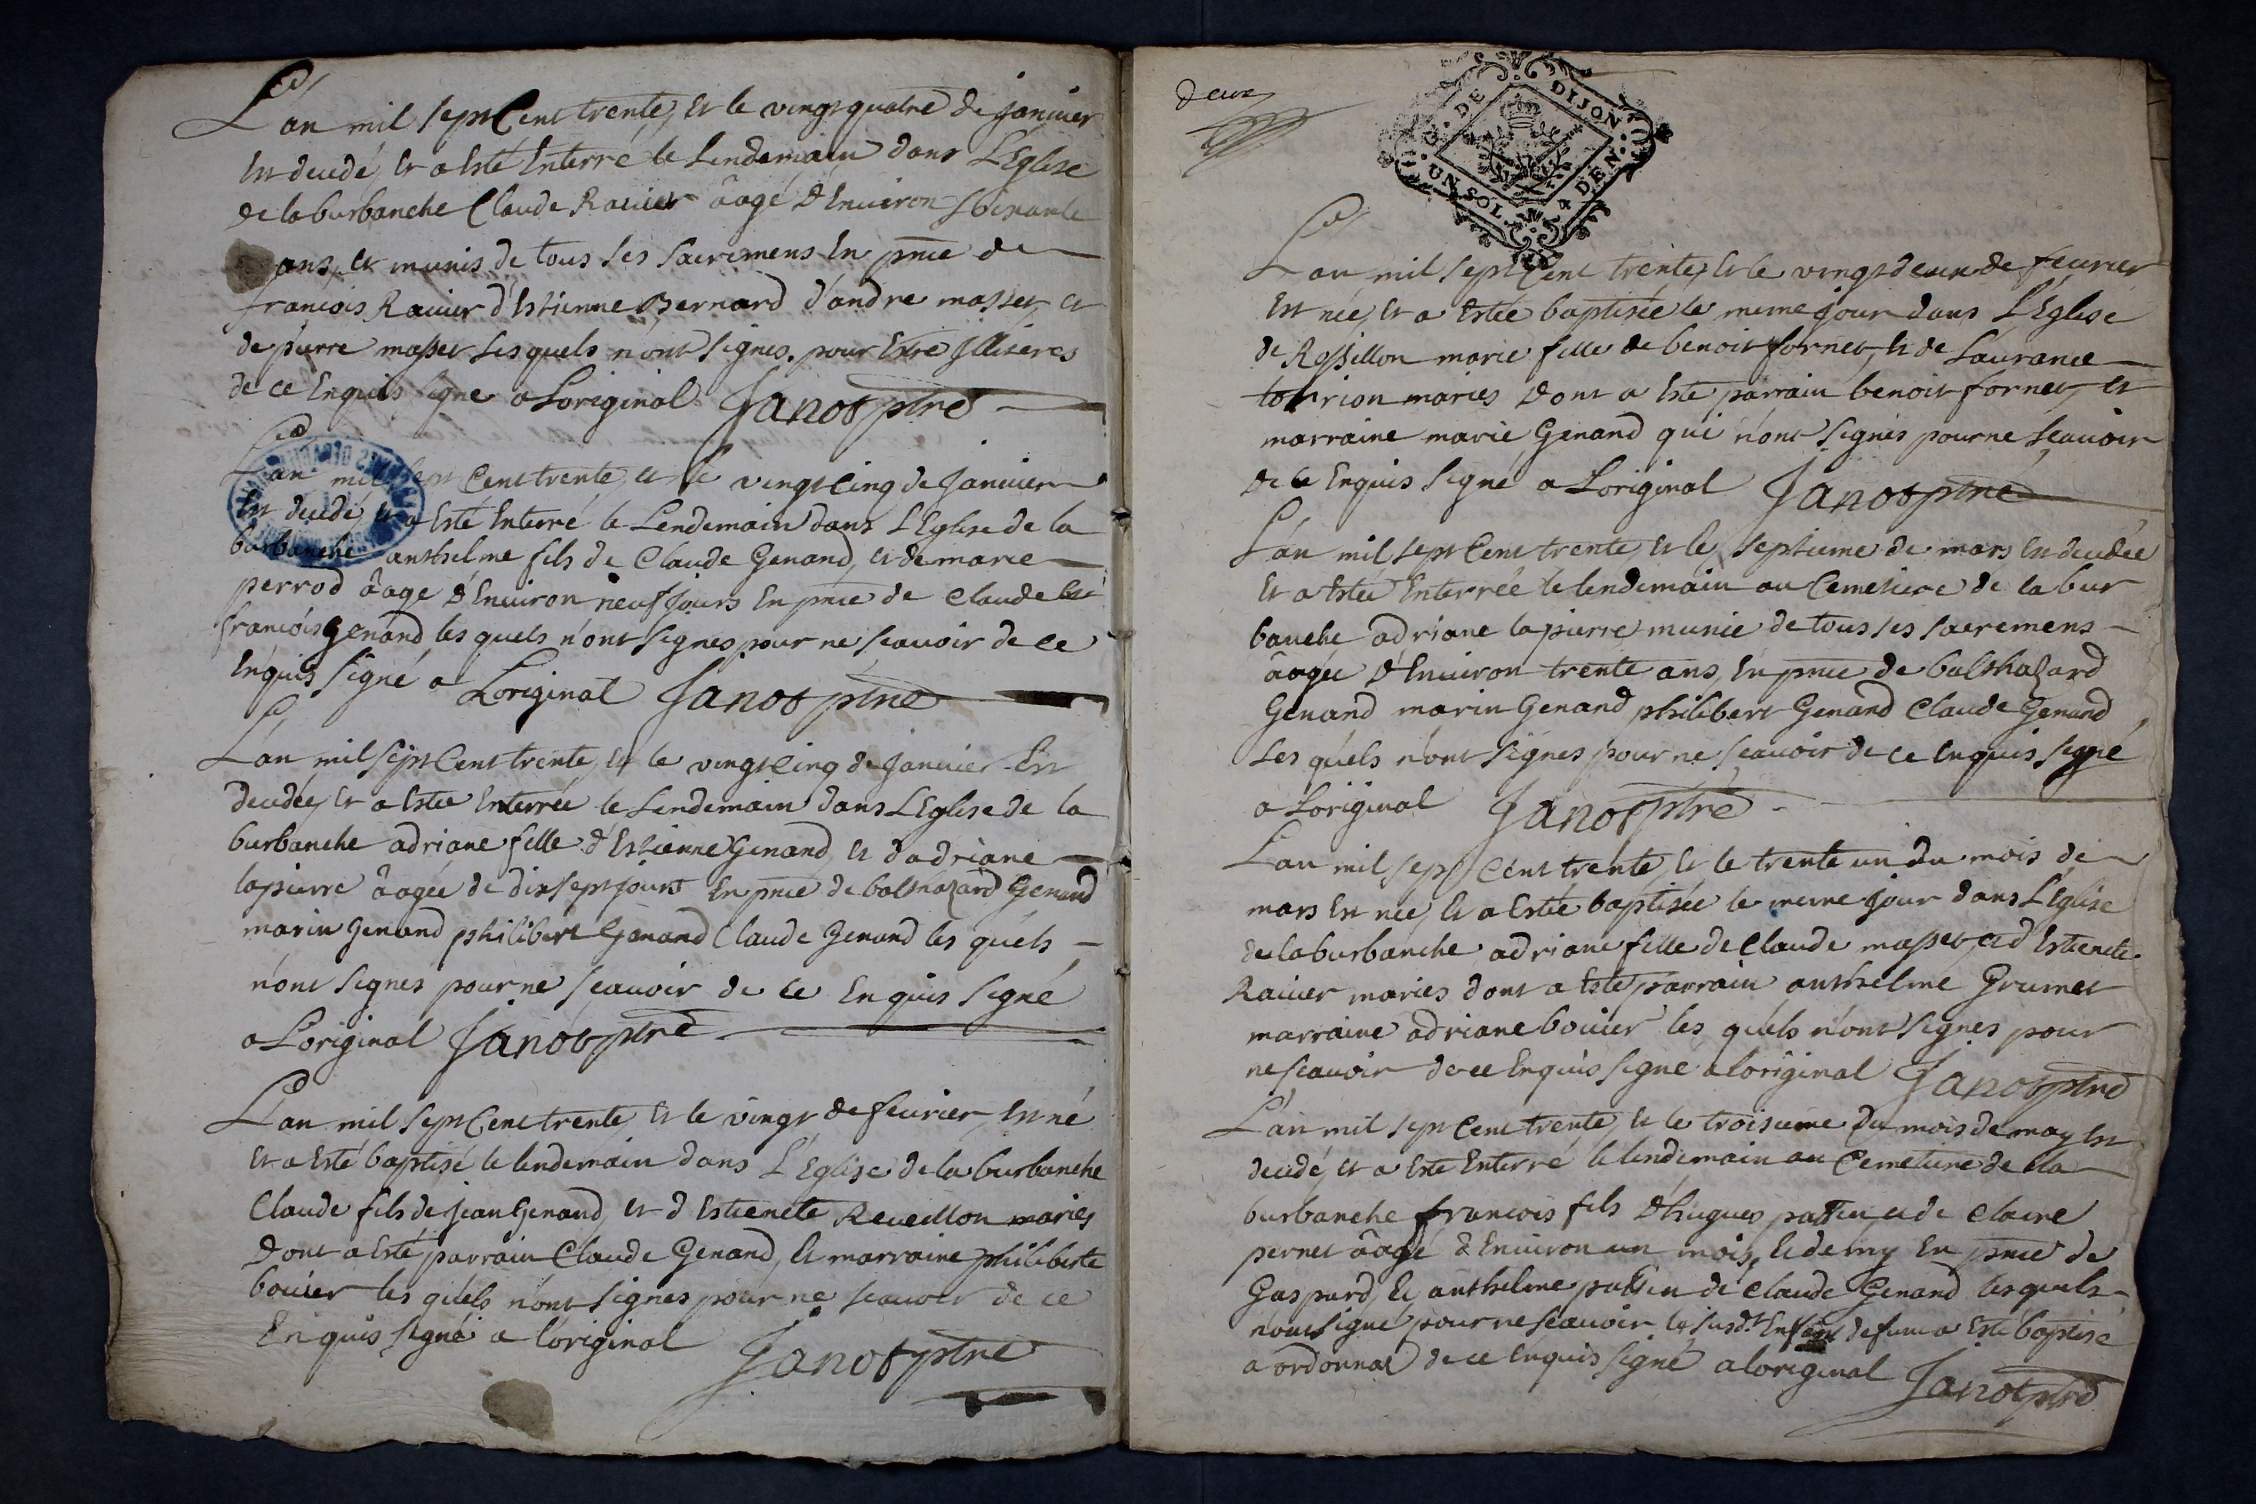 L'an mil sept Cent trente, et le vingt quatre de janvier
est decedé, et a esté Enterré le Lendemain dans L'Eglise
de la burbanche Claude Ravier âagé d'Environ soixante
ans, et munis de tous ses sacremens En pnce de
françois Ravier d'Estienne Bernard d'andre masset, et
de pierre masset Lesquels n'ont signés pour Estre Illiteres
de ce Enquis signé a Loriginal Janot ptre
L'an mil sept Cent trente, et le vingt Cinq de Janvier
Est decedé, et a Esté Enterré le Lendemain dans L'Eglise de la
burbanche anthelme fils de Claude Genand, et de marie
perrod âagé d'Environ neuf Jours En pnce de Claude et
françois Genand les quels n'ont signés pour ne scavoir de ce
Enquis signé a Loriginal Janot ptre
L'an mil sept Cent trente, et le vingt Cinq de Janvier Est
decedée, et a Estée Enterrée le Lendemain dans L'Eglise de la
burbanche adriane fille d'Estienne Genand, et d'adriane
lapierre âagée de dix sept jours En pnce de balthazard Genand
marin Genand philibert Genand Claude Genand les quels
n'ont signés pour ne scavoir de ce Enquis signé
a Loriginal Janot ptre
L'an mil sept Cent trente, et le vingt de fevrier, est né
et a Esté baptisé le lendemain dans L'Eglise de la burbanche
Claude fils de jean Genand, et d'Estienete Reveillon mariés
dont a Esté parrain Claude Genand, et marraine philiberte
bovier les quels n'ont signés pour ne scavoir de ce
Enquis signé a Loriginal Janot ptre
deux
G. DE DIJON
UN SOL 4 DEN.
L'an mil sept Cent trente, et le vingt deux de fevrier
Est née, et a Estée baptisée le meme jour dans L'Eglise
de Rossillon marie fille de benoit fornet, et de Laurance
torrion mariés dont a Esté parrain benoit fornet, et
marraine marie Genand qui n'ont signés pour ne scavoir
de ce Enquis signé a Loriginal Janot ptre
L'an mil sept Cent trente, et le septieme de mars Est decedée
et a Estée Enterrée le lendemain au Cemetiere de la bur
banche adriane lapierre munie de tous ses sacremens
âagée d'Environ trente ans, En pnce de balthazard
Genand marin Genand philibert Genand Claude Genand
Les quels n'ont signés pour ne scavoir de ce Enquis signé
a Loriginal Janot ptre
L'an mil sept Cent trente, et le trente un du mois de
mars Est née, et a Estée baptisée le meme jour dans L'Eglise
de la burbanche adriane fille de Claude masset, et d'Estienete
Ravier mariés dont a Esté parrain anthelme Grumet
marraine adriane bovier les quels n'ont signés pour
ne scavoir de ce Enquis signé a loriginal Janot ptre
L'an mil sept Cent trente, et le troisieme du mois de may Est
decedé, et a Esté Enterré le lendemain au Cemetiere de la
burbanche françois fils d'hugues pattin et de Claire
pernet âagé d'Environ un mois, et demy En pnce de
Gaspard, et anthelme pattin de Claude Genand lesquels
n'ont signé pour ne scavoir le susdt Enfant defunt a Esté baptisé
a ordonnaz de ce Enquis signé a loriginal Janot ptre